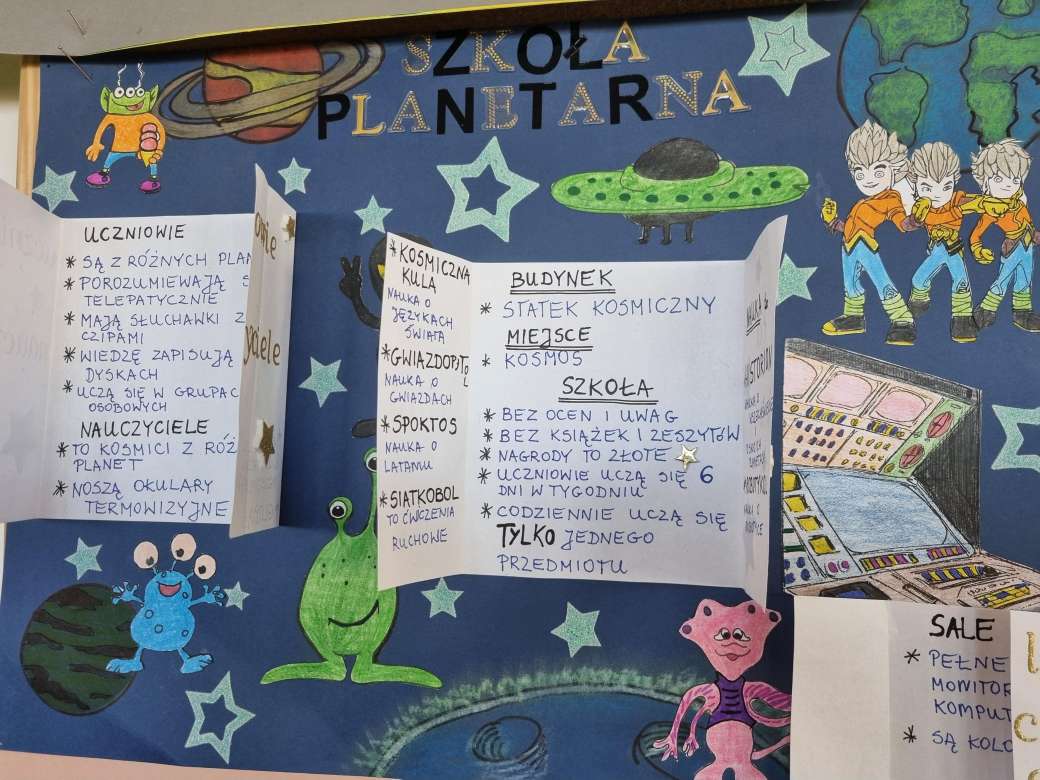 SZKOŁA
PLANETARNA
UCZNIOWIE
* SĄ Z RÓŻNYCH
* POROZUMIEWAJĄ
TELEPATYCZNIE
* MAJĄ SŁUCHAWKI Z
CZIPAMI
* WIEDZĘ ZAPISUJĄ
DYSKACH
* UCZĄ SIĘ W
OSOBOWYCH
NAUCZYCIELE
* TO KOSMICI Z
PLANET
* NOSZĄ OKULARY
TERMOWIZYJNE
* KOSMICZNA
KULA
NAUKA O
JĘZYKACH
ŚWIATA
* GWIAZDOPIS
NAUKA O
GWIAZDACH
* SPOKTOS
NAUKA O
LATANIU
* SIATKOBOL
TO ĆWICZENIA
RUCHOWE
BUDYNEK
* STATEK KOSMICZNY
MIEJSCE
* KOSMOS
SZKOŁA
* BEZ OCEN I UWAG
* BEZ KSIĄŻEK I ZESZYTÓW
* NAGRODY TO ZŁOTE
* UCZNIOWIE UCZĄ SIĘ 6
DNI W TYGODNIU
* CODZIENNIE UCZĄ SIĘ
TYLKO JEDNEGO
PRZEDMIOTU
SALE
* PEŁNE
* SĄ